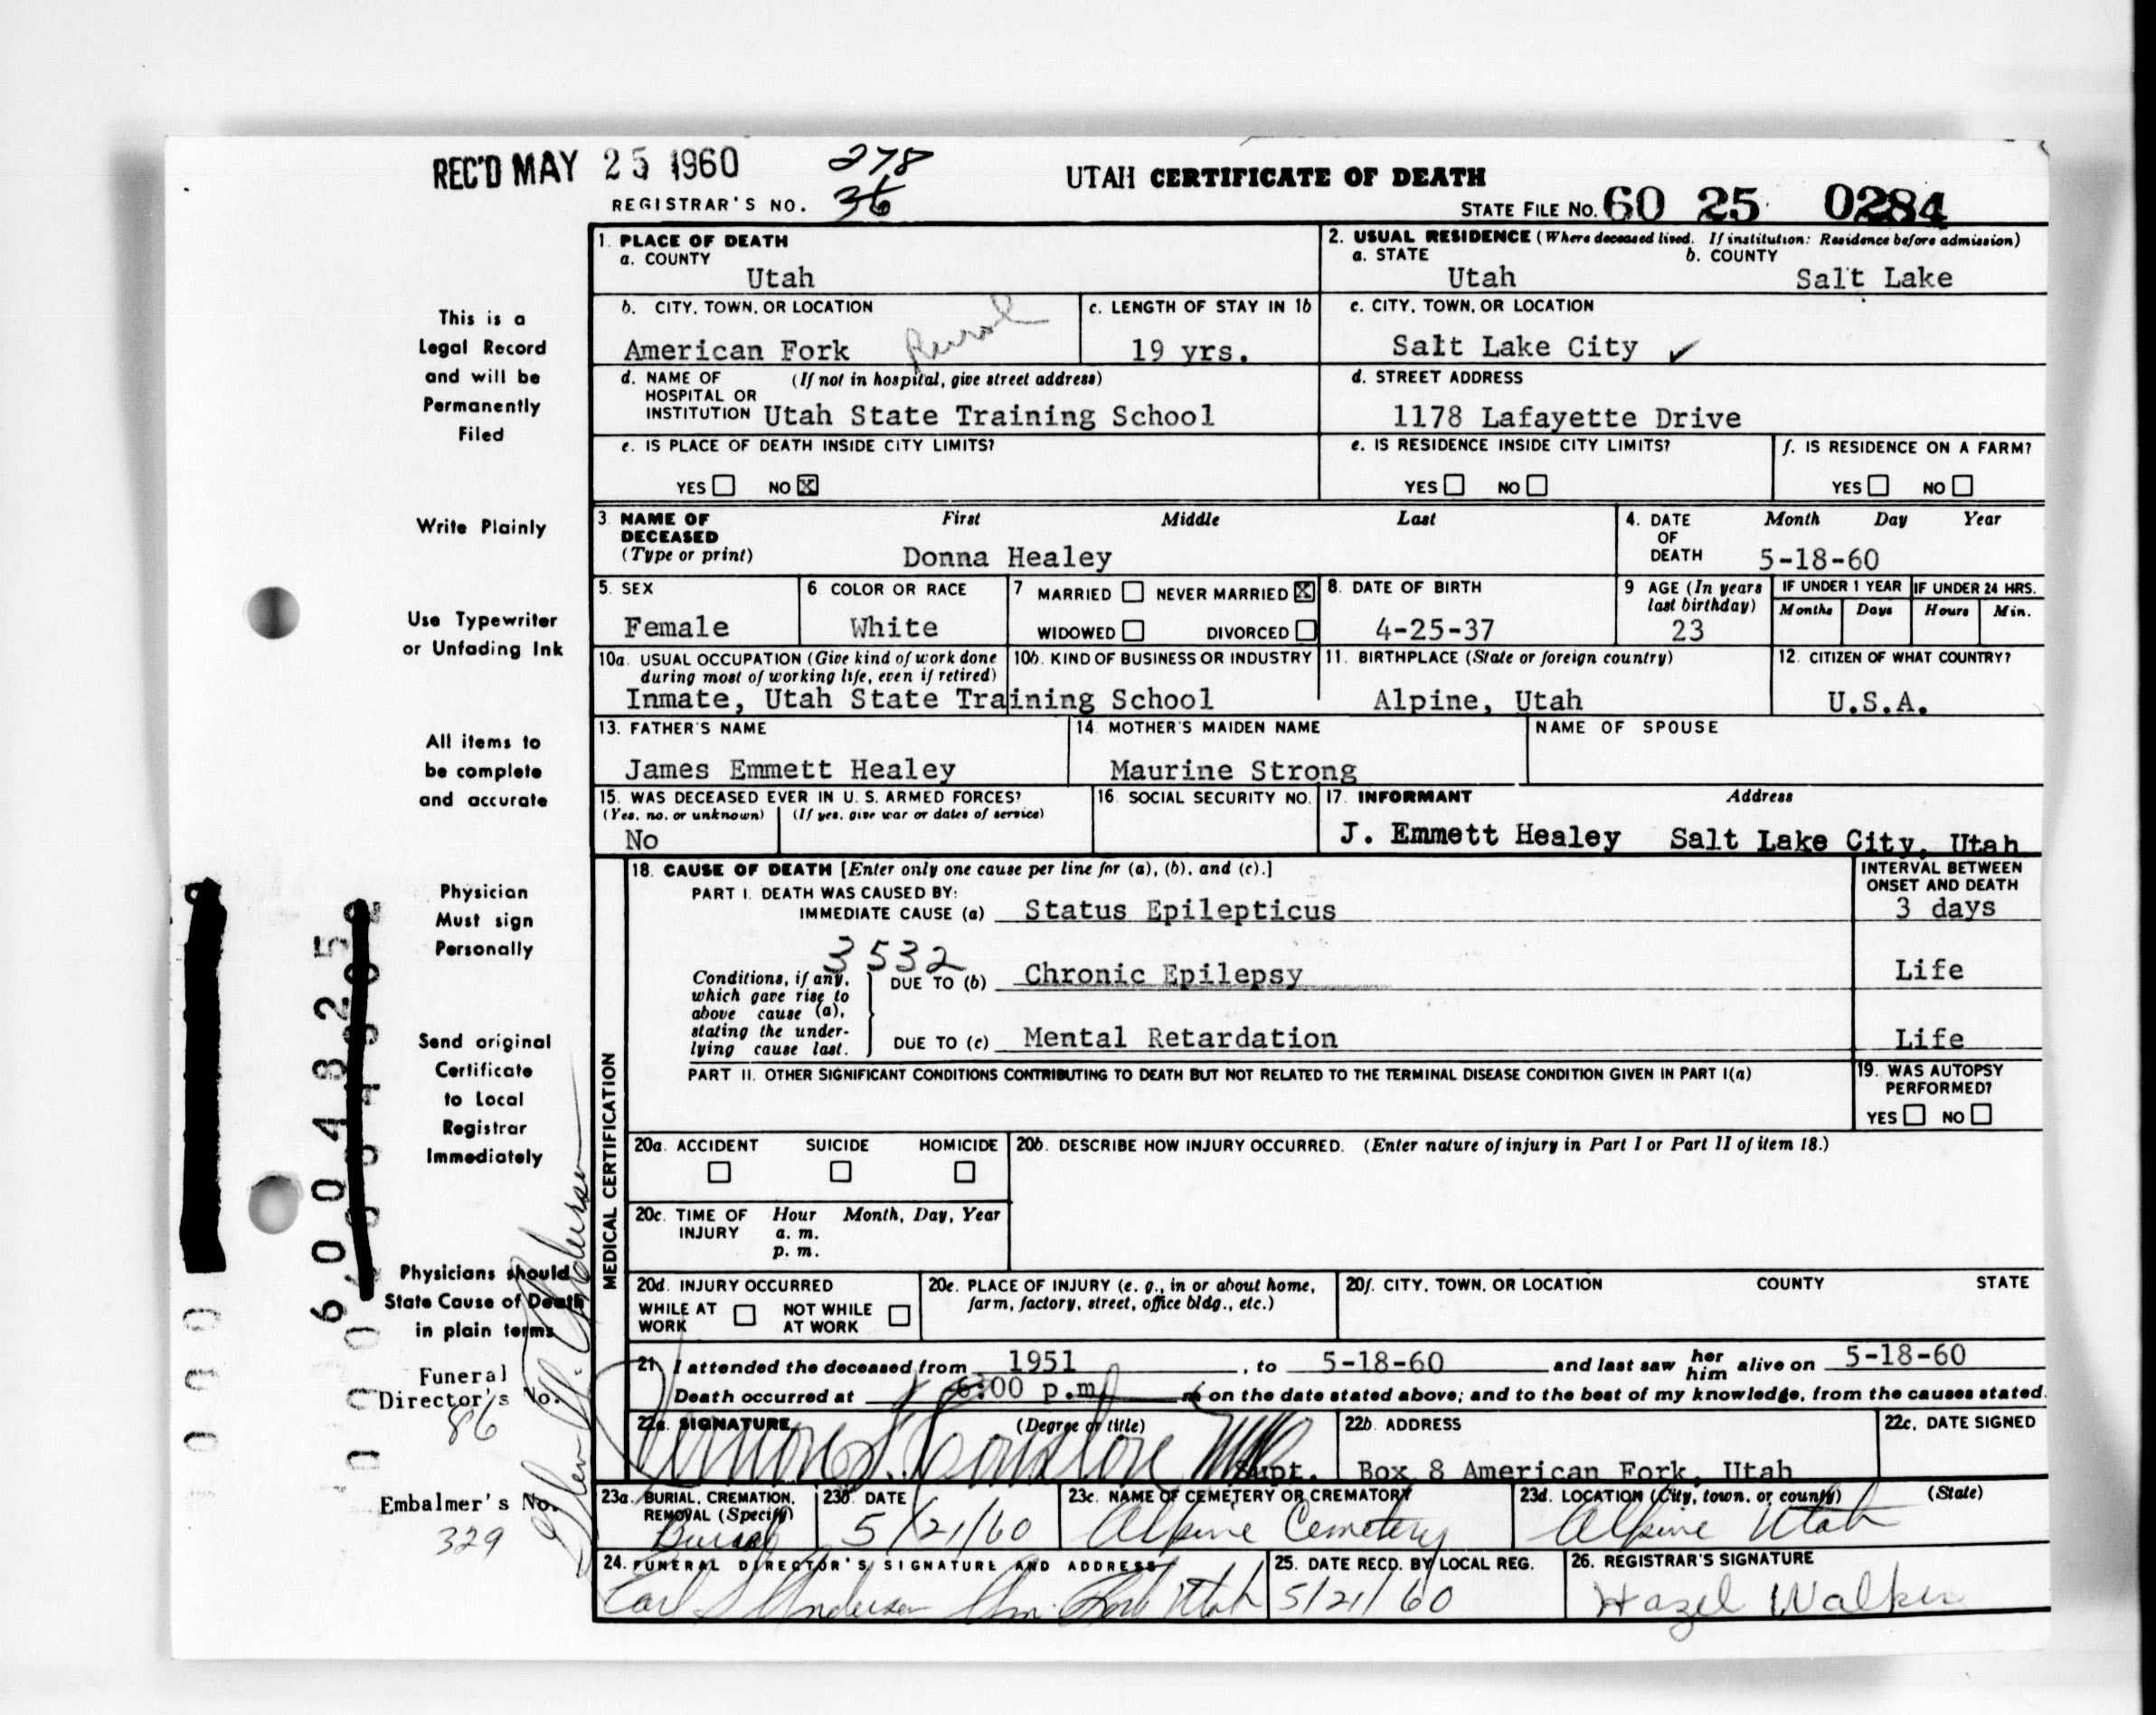 REC'D MAY 25 1960
278
REGISTRAR'S NO. 36
UTAH CERTIFICATE OF DEATH
STATE FILE No. 60 25 0284
This is a
Legal Record
and will be
Permanently
Filed
Write Plainly
Use Typewriter
or Unfading Ink
All items to
be complete
and accurate
Physician
Must sign
Personally
Send original
Certificate
to Local
Registrar
Immediately
Physicians should
State Cause of Death
in plain terms
Funeral
Director's No.
86
Embalmer's No.
329
1. PLACE OF DEATH
a. COUNTY
Utah
2. USUAL RESIDENCE (Where deceased lived. If institution: Residence before admission)
a. STATE b. COUNTY
Utah Salt Lake
b. CITY, TOWN, OR LOCATION
American Fork Rural
c. LENGTH OF STAY IN 1b
19 yrs.
c. CITY, TOWN, OR LOCATION
Salt Lake City ✓
d. NAME OF (If not in hospital, give street address)
HOSPITAL OR
INSTITUTION Utah State Training School
d. STREET ADDRESS
1178 Lafayette Drive
e. IS PLACE OF DEATH INSIDE CITY LIMITS?
YES ☐ NO ☒
e. IS RESIDENCE INSIDE CITY LIMITS?
YES ☐ NO ☐
f. IS RESIDENCE ON A FARM?
YES ☐ NO ☐
3. NAME OF First Middle Last
DECEASED
(Type or print) Donna Healey
4. DATE Month Day Year
OF
DEATH 5-18-60
5. SEX
Female
6. COLOR OR RACE
White
7 MARRIED ☐ NEVER MARRIED ☒
WIDOWED ☐ DIVORCED ☐
8. DATE OF BIRTH
4-25-37
9 AGE (In years
last birthday)
23
IF UNDER 1 YEAR IF UNDER 24 HRS.
Months Days Hours Min.
10a. USUAL OCCUPATION (Give kind of work done
during most of working life, even if retired)
10b. KIND OF BUSINESS OR INDUSTRY
Inmate, Utah State Training School
11. BIRTHPLACE (State or foreign country)
Alpine, Utah
12. CITIZEN OF WHAT COUNTRY?
U.S.A.
13. FATHER'S NAME
James Emmett Healey
14. MOTHER'S MAIDEN NAME
Maurine Strong
NAME OF SPOUSE
15. WAS DECEASED EVER IN U. S. ARMED FORCES?
(Yes, no, or unknown) (If yes, give war or dates of service)
No
16. SOCIAL SECURITY NO.
17. INFORMANT Address
J. Emmett Healey Salt Lake City, Utah
MEDICAL CERTIFICATION
18. CAUSE OF DEATH [Enter only one cause per line for (a), (b), and (c).]
PART I. DEATH WAS CAUSED BY:
IMMEDIATE CAUSE (a) Status Epilepticus
INTERVAL BETWEEN
ONSET AND DEATH
3 days
3532
Conditions, if any,
which gave rise to
above cause (a),
stating the under-
lying cause last.
DUE TO (b) Chronic Epilepsy Life
DUE TO (c) Mental Retardation Life
PART II. OTHER SIGNIFICANT CONDITIONS CONTRIBUTING TO DEATH BUT NOT RELATED TO THE TERMINAL DISEASE CONDITION GIVEN IN PART I(a)
19. WAS AUTOPSY
PERFORMED?
YES ☐ NO ☐
20a. ACCIDENT SUICIDE HOMICIDE
☐ ☐ ☐
20b. DESCRIBE HOW INJURY OCCURRED. (Enter nature of injury in Part I or Part II of item 18.)
20c. TIME OF Hour Month, Day, Year
INJURY a. m.
p. m.
20d. INJURY OCCURRED
WHILE AT ☐ NOT WHILE ☐
WORK AT WORK
20e. PLACE OF INJURY (e. g., in or about home,
farm, factory, street, office bldg., etc.)
20f. CITY, TOWN, OR LOCATION COUNTY STATE
21. I attended the deceased from 1951, to 5-18-60 and last saw her him alive on 5-18-60
Death occurred at 6:00 p.m. m on the date stated above; and to the best of my knowledge, from the causes stated.
22a. SIGNATURE (Degree or title)
Supt.
22b. ADDRESS
Box 8 American Fork, Utah
22c. DATE SIGNED
23a. BURIAL, CREMATION,
REMOVAL (Specify)
Burial
23b. DATE
5/21/60
23c. NAME OF CEMETERY OR CREMATORY
Alpine Cemetery
23d. LOCATION (City, town, or county) (State)
Alpine Utah
24. FUNERAL DIRECTOR'S SIGNATURE AND ADDRESS
Carl S Anderson Am. Fork Utah
25. DATE RECD. BY LOCAL REG.
5/21/60
26. REGISTRAR'S SIGNATURE
Hazel Walker